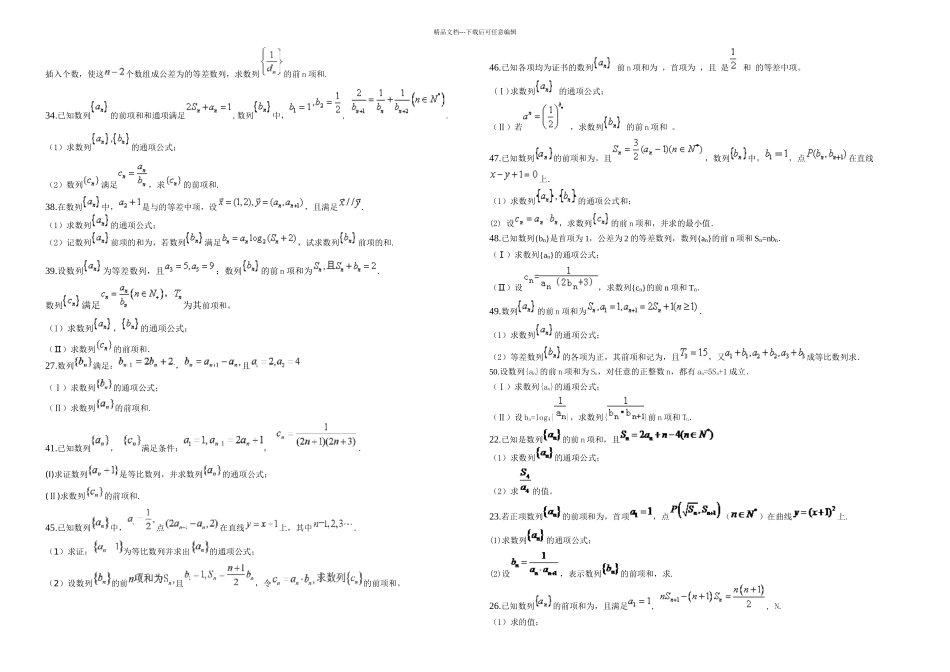 精品文档---下载后可任意编辑
插入个数，使这 n−2 个数组成公差为的等差数列，求数列 {1/dₙ} 的前 n 项和.
34.已知数列 {aₙ} 的前项和和通项满足 2Sₙ+aₙ=1 ，数列 {bₙ} 中， b₁=1, b₂=1/2 ， 2/bₙ₊₁=1/bₙ+1/bₙ₊₂(n∈N*) .
（1）求数列 {aₙ},{bₙ} 的通项公式；
（2）数列 {cₙ} 满足 cₙ=aₙ/bₙ ，求 {cₙ} 的前项和.
38.在数列 {aₙ} 中， a₂+1 是与的等差中项，设 x⃗=(1,2), y⃗=(aₙ,aₙ₊₁) ，且满足 x⃗//y⃗ .
（1）求数列 {aₙ} 的通项公式；
（2）记数列 {aₙ} 前项的和为，若数列 {bₙ} 满足 bₙ=aₙlog₂(Sₙ+2) ，试求数列 {bₙ} 前项的和.
39.设数列 {aₙ} 为等差数列，且 a₃=5,a₅=9 ；数列 {bₙ} 的前 n 项和为 Sₙ,且Sₙ+bₙ=2 .
数列 {cₙ} 满足 cₙ=aₙ/bₙ(n∈N₊)， Tₙ 为其前项和。
（Ⅰ）求数列 {aₙ} ， {bₙ} 的通项公式；
（Ⅱ）求数列 {cₙ} 的前项和.
27.数列 {bₙ} 满足： bₙ₊₁=2bₙ+2 ， bₙ=aₙ₊₁−aₙ ,且 a₁=2,a₂=4
（Ⅰ）求数列 {bₙ} 的通项公式；
（Ⅱ）求数列 {aₙ} 的前项和.
41.已知数列 {aₙ} ， {cₙ} 满足条件： a₁=1, aₙ₊₁=2aₙ+1 ， cₙ=1/((2n+1)(2n+3)) .
(Ⅰ)求证数列 {aₙ+1} 是等比数列，并求数列 {aₙ} 的通项公式；
(Ⅱ)求数列 {cₙ} 的前项和.
45.已知数列 {aₙ} 中， =1/2, 点 在直线 y=x+1 上，其中 n=1,2,3⋯ .
（1）求证： 为等比数列并求出 {aₙ} 的通项公式；
（2）设数列 {bₙ} 的前 n项和为Sₙ,且 b₁=1,Sₙ=(n+1)/2 bₙ ，令 cₙ=aₙ·bₙ,求数列{cₙ} 的前项和。
46.已知各项均为证书的数列 {aₙ} 前 n 项和为 ，首项为 ，且 是 1/2 和 的等差中项。
（Ⅰ）求数列 {aₙ} 的通项公式；
（Ⅱ）若 aₙ=(1/2)^bₙ ，求数列 {bₙ} 的前 n 项和 。
47.已知数列 {aₙ} 的前项和为，且 Sₙ=3/2(aₙ−1)(n∈N*) ，数列 {bₙ} 中， b₁=1 ，点 P(bₙ,bₙ₊₁) 在直线
x−y+1=0 上.
（1）求数列 {aₙ},{bₙ} 的通项公式和；
⑵ 设 cₙ=aₙ·bₙ ，求数列 {cₙ} 的前 n 项和，并求的最小值.
48.已知数列{bₙ}是首项为 1，公差为 2 的等差数列，数列{aₙ}的前 n 项和 Sₙ=nbₙ.
（Ⅰ）求数列{aₙ}的通项公式；
（Ⅱ）设 cₙ=1/(aₙ(2bₙ+3)) ，求数列{cₙ}的前 n 项和 Tₙ.
49.数列 {aₙ} 的前 n 项和为 Sₙ,a₁=1,aₙ₊₁=2Sₙ+1(n≥1) .
（1）求数列 {aₙ} 的通项公式；
（2）等差数列 {bₙ} 的各项为正，其前项和记为，且 T₃=15 ，又 a₁+b₁,a₂+b₂,a₃+b₃ 成等比数列求.
50.设数列{aₙ}的前 n 项和为 Sₙ，对任意的正整数 n，都有 aₙ=5Sₙ+1 成立.
（Ⅰ）求数列{aₙ}的通项公式；
（Ⅱ）设 bₙ=log₄|1/aₙ|，求数列{1/(bₙ•bₙ₊₁)}前 n 项和 Tₙ.
22.已知是数列 {aₙ} 的前 n 项和，且 Sₙ=2aₙ+n−4(n∈N*)
（1）求数列 {aₙ} 的通项公式；
（2）求 S₄/a₄ 的值。
23.若正项数列 {aₙ} 的前项和为，首项 a₁=1 ，点 P(√Sₙ,Sₙ₊₁) （ n∈N* ）在曲线 y=(x+1)² 上.
⑴求数列 {aₙ} 的通项公式；
⑵设 bₙ=1/(aₙ·aₙ₊₁) ，表示数列 {bₙ} 的前项和，求.
26.已知数列 {aₙ} 的前项和为，且满足 a₁=1 ， nSₙ₊₁−(n+1)Sₙ=n(n+1)/2 ，N.
（1）求的值；